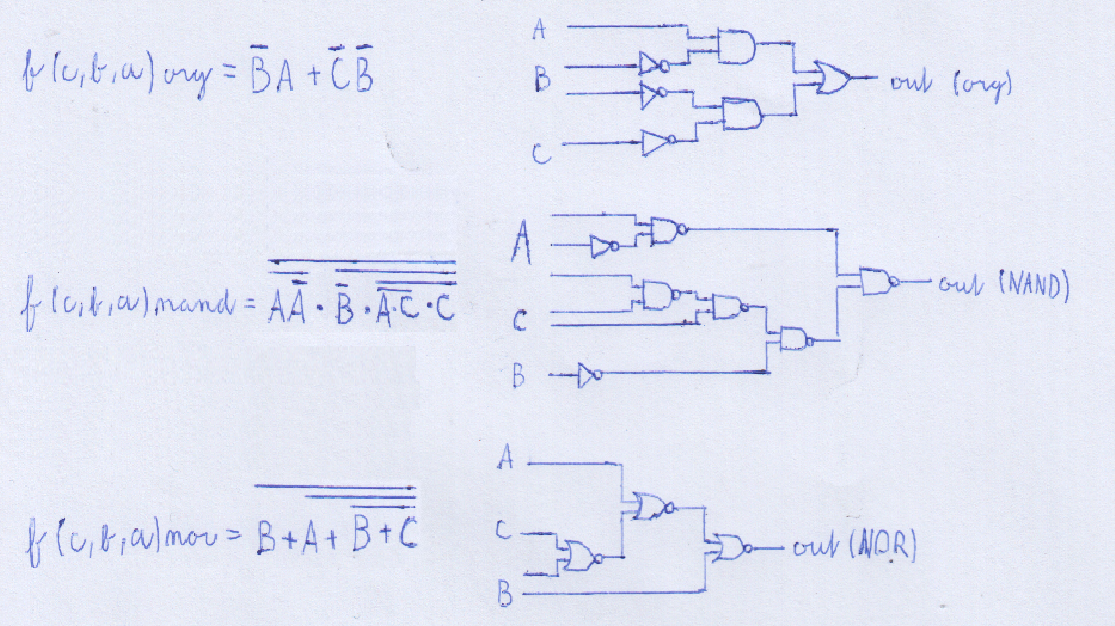 f(c,b,a)org = B̅A + C̅B̅
A
B
C
out (org)
f(c,b,a)nand = A̅A̅̅ · B̅ · A̅·̅C̅ · C
A
C
B
out (NAND)
f(c,b,a)nor = B + A + B̅+̅C̅
A
C
B
out (NOR)